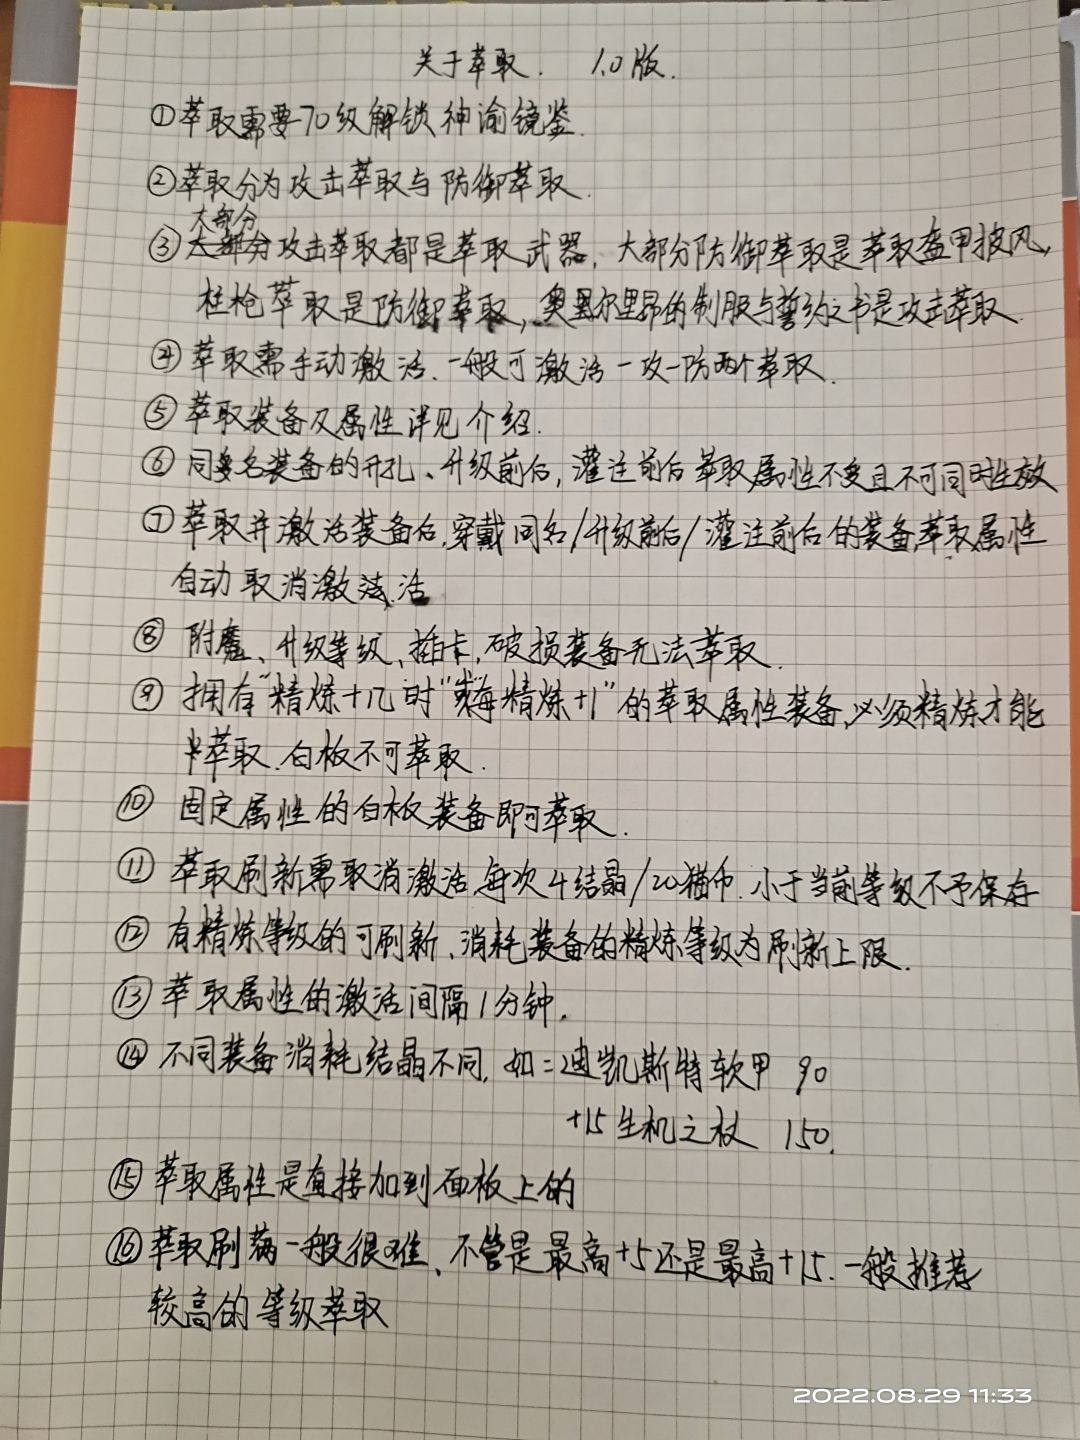 关于萃取. 1.0版.
①萃取需要70级解锁神谕镜鉴.
②萃取分为攻击萃取与防御萃取.
大部分
③大部分攻击萃取都是萃取武器，大部分防御萃取是萃取盔甲披风，
柱枪萃取是防御萃取，奥里尔里昂的制服与誓约之书是攻击萃取.
④萃取需手动激活.一般可激活一攻一防两个萃取.
⑤萃取装备及属性详见介绍.
⑥同名装备的开孔、升级前后，灌注前后萃取属性不变且不可同时生效
⑦萃取并激活装备后，穿戴同名/升级前后/灌注前后的装备，萃取属性
自动取消激活
⑧附魔、升级等级、插卡，破损装备无法萃取.
⑨拥有“精炼+几时”或“每精炼+1”的萃取属性装备，必须精炼才能
萃取.白板不可萃取.
⑩固定属性的白板装备即可萃取.
⑪萃取刷新需取消激活，每次4结晶/20猫币.小于当前等级不予保存
⑫有精炼等级的可刷新、消耗装备的精炼等级为刷新上限.
⑬萃取属性的激活间隔1分钟.
⑭不同装备消耗结晶不同，如：迪凯斯特软甲 90
+15生机之杖 150.
⑮萃取属性是直接加到面板上的
⑯萃取刷满一般很难、不管是最高+5还是最高+15.一般推荐
较高的等级萃取
2022.08.29 11:33